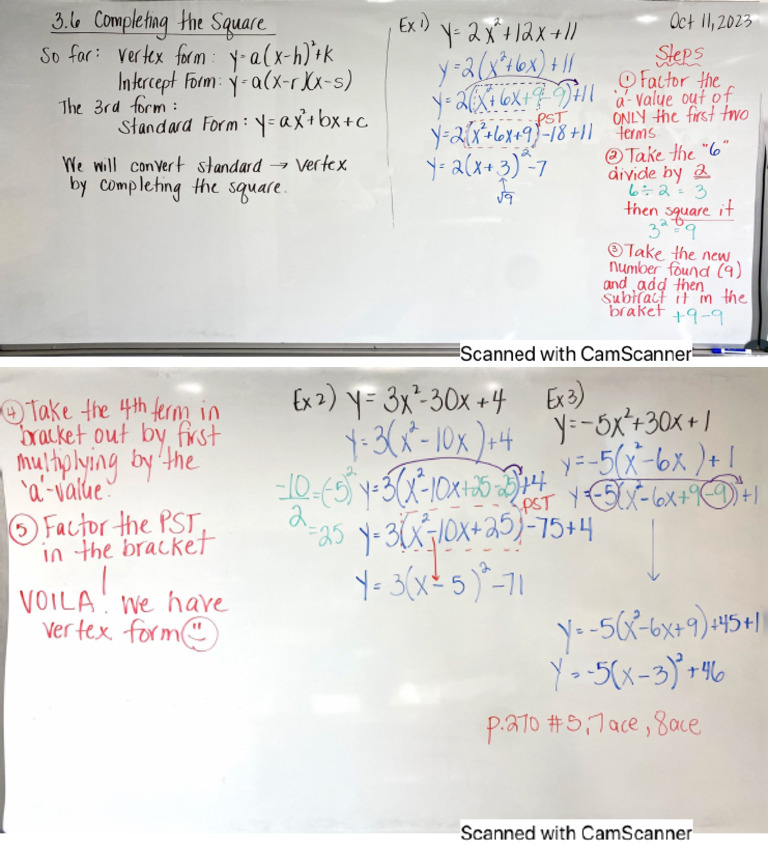 3.6 Completing the Square
So far: vertex form: y=a(x-h)²+k
Intercept Form: y=a(x-r)(x-s)
The 3rd form:
Standard Form: y=ax²+bx+c
We will convert standard → vertex
by completing the square.
Ex 1) y=2x²+12x+11
y=2(x²+6x)+11
y=2(x²+6x+9-9)+11
PST
y=2(x²+6x+9)-18+11
y=2(x+3)²-7
√9
Oct 11, 2023
Steps
① Factor the
'a'-value out of
ONLY the first two
terms.
② Take the "6"
divide by 2
6÷2=3
then square it
3²=9
③ Take the new
number found (9)
and add then
subtract it in the
braket +9-9
Scanned with CamScanner
④ Take the 4th term in
bracket out by first
multiplying by the
'a'-value.
⑤ Factor the PST
in the bracket
VOILA! We have
vertex form
Ex 2) y=3x²-30x+4
y=3(x²-10x)+4
-10/2=(-5)²
=25
y=3(x²-10x+25-25)+4
PST
y=3(x²-10x+25)-75+4
y=3(x-5)²-71
Ex 3)
y=-5x²+30x+1
y=-5(x²-6x )+1
y=-5(x²-6x+9-9)+1
y=-5(x²-6x+9)+45+1
y=-5(x-3)²+46
p.270 #5,7ace,8ace
Scanned with CamScanner